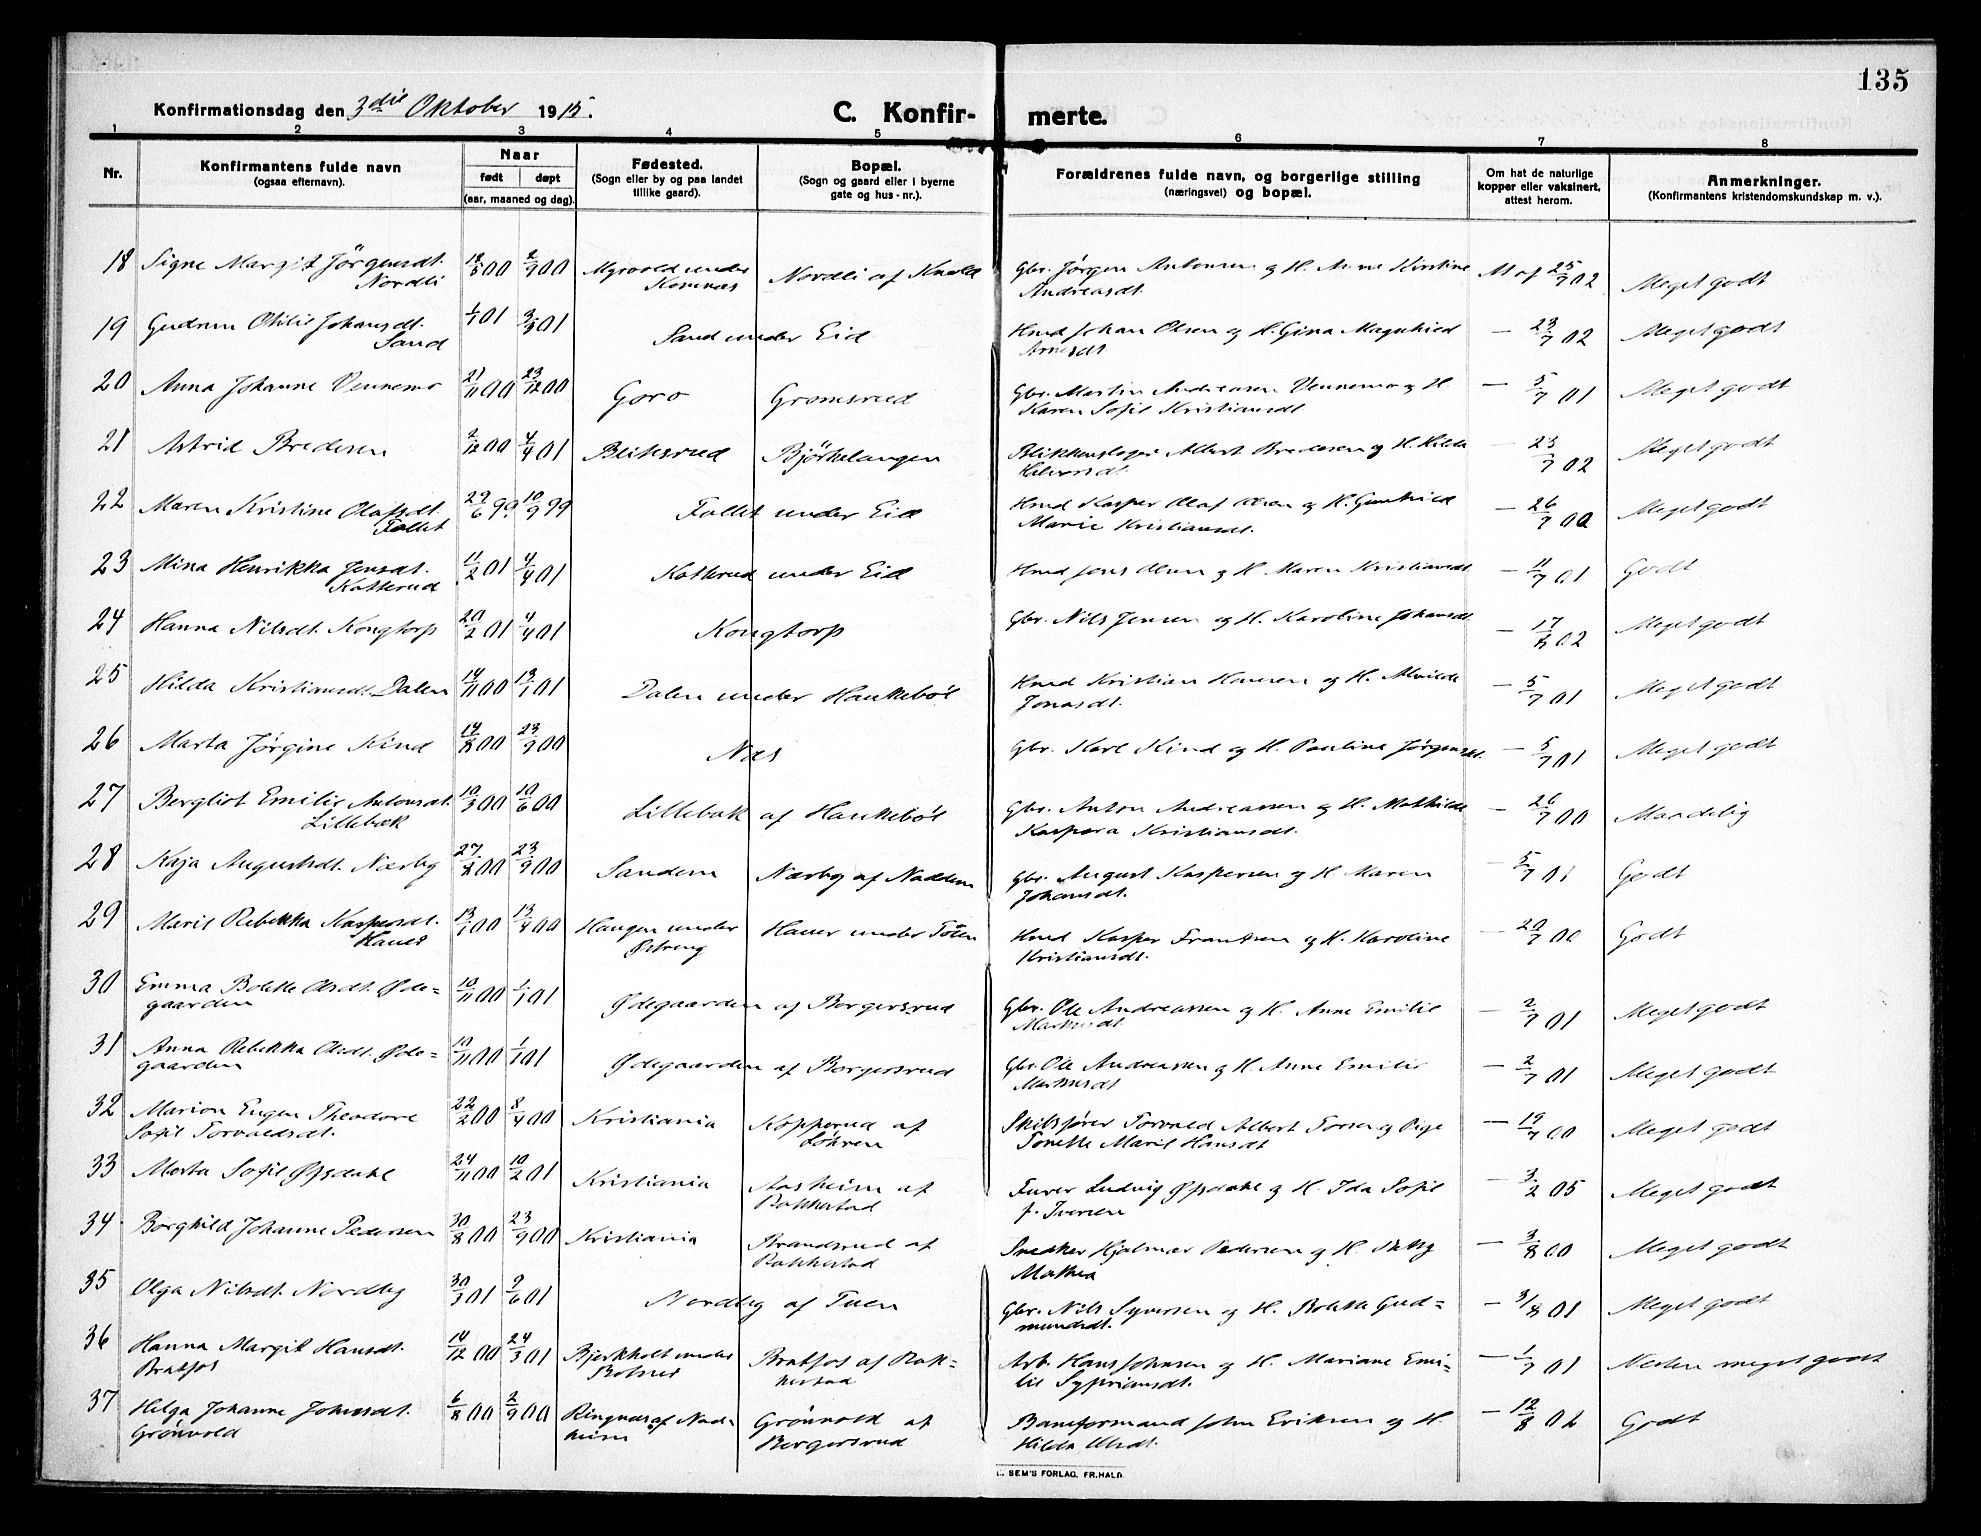 135
Konfirmationsdag den 3die Oktober 1915.
C. Konfir- merte.
1 2 3 4 5 6 7 8
Nr.
Konfirmantens fulde navn
(ogsaa efternavn).
Naar
født døpt
(aar, maaned og dag).
Fødested.
(Sogn eller by og paa landet
tillike gaard).
Bopæl.
(Sogn og gaard eller i byerne
gate og hus-nr.).
Forældrenes fulde navn, og borgerlige stilling
(næringsvei) og bopæl.
Om hat de naturlige
kopper eller vaksinert,
attest herom.
Anmerkninger.
(Konfirmantens kristendomskundskap m. v.).
18 Signe Margit Jørgensdt. 18/5 00 2/9 00 Myrvold under Nordli af Gbr. Jørgen Antonsen og H. Anne Kirstine 25/7 02 Meget godt
Nordli Komnæs Andreasdt.
19 Gudrun Otilie Johansdt. 1/1 01 Sand under Eid Hmd Johan Olsen og H. Gina Magnhild — 23/7 02 Meget godt
Sand Arnesdt
20 Anna Johanne Vennemo 21/11 00 23/12 00 Goro Gromsrud Gbr. Martin Andreasen Vennemo og H — 5/7 01 Meget godt
Karen Sofie Kristiansdt.
21 Astrid Bredesen 2/12 00 4/4 01 Bliksrud Bjørkelangen Blikkenslager Albert Bredesen og H. Hilda — 23/7 02 Meget godt
22 Maren Kristine Olafsdt. 29/6 99 10/9 99 Follet under Eid Hmd Kasper Olaf Olsen og H. Gunhild — 26/7 00 Meget godt
Follet Marie Kristiansdt.
23 Mina Henrikka Jensdt. 11/2 01 4/4 01 Katterud under Eid Hmd Jens Olsen og H. Maren Kristiansdt — 11/7 01 Godt
Katterud
24 Hanna Nilsdt. Kongtorp 20/2 01 4/4 01 Kongtorp Gbr. Nils Jensen og H. Karoline Johansdt — 17/6 02 Meget godt
25 Hilda Kristiansdt. Dalen 14/11 00 13/1 01 Dalen under Haukebøl Hmd Kristian Hansen og H. Alvilde — 5/7 01 Meget godt
Jonasdt.
26 Marta Jørgine Kind 14/8 00 23/9 00 Næs Gbr. Karl Kind og H. Pauline Jørgensdt. — 5/7 01 Meget godt
27 Bergliot Emilie Antonsdt. 10/3 00 10/6 00 Lillebæk af Haukebøl Gbr. Anton Andreassen og H. Mathilde — 26/7 00 Maadelig
Lillebæk Kaspara Kristiansdt.
28 Kaja Augustsdt. Nærby 27/8 00 23/9 00 Sandem Nærby af Naddum Gbr. August Kaspersen og H Maren — 5/7 01 Godt
Johansdt.
29 Marie Rebekka Kaspersdt. 13/1 00 13/4 00 Haugen under Haner under Toten Hmd Kasper Frantsen og H. Karoline — 20/7 00 Godt
Haner Kristiansdt.
30 Emma Bolette Olsdt. Øde= 10/11 00 1/1 01 Ødegaarden af Bergersrud Gbr. Ole Andreassen og H. Anne Emilie — 2/7 01 Meget godt
gaarden
31 Anna Rebekka Olsdt. Øde= 10/11 00 1/1 01 Ødegaarden af Bergersrud Gbr. Ole Andreassen og H. Anne Emilie — 2/7 01 Meget godt
gaarden
32 Marion Eugen Theodore 22/2 00 8/4 00 Kristiania Kopperud af Skibsfører Torvald Albert Torsen og Pige — 19/7 00 Meget godt
Sofie Torvaldsdt. Løkren Tonette Marie Hansdt
33 Marta Sofie Øfsdahl 24/11 00 10/2 01 Kristiania Aasheim af Ludvig Øfsdahl og H. Ida Sofie — 3/2 05 Meget godt
Rakkestad f. Iversen
34 Borghild Johanne Pedersen 30/8 00 23/9 00 Kristiania Brandsrud af Snedker Hjalmar Pedersen og H — 3/8 00 Meget godt
Rakkestad Mathea
35 Olga Nilsdt. Nordby 30/3 01 9/6 01 Nordby af Tuen Gbr. Nils Syversen og H. Bolette Gud= — 3/8 01 Meget godt
mundsdt.
36 Hanna Margit Hansdt. 14/12 00 24/3 01 Bjerkholt under Bratfos af Rak= Arb. Hans Johnsen og H. Mariane Emi= — 1/7 01 Nesten meget godt
Bratfos kestad lie Sypriansdt.
37 Helga Johanne Johnsdt. 6/8 00 2/9 00 Ringnæs af Nad= Grønvold af Baneformand John Eriksen og H — 12/8 02 Godt
Grønvold heim Bergersrud Hilda Olsdt.
SEM'S FORLAG, FR.HALD.